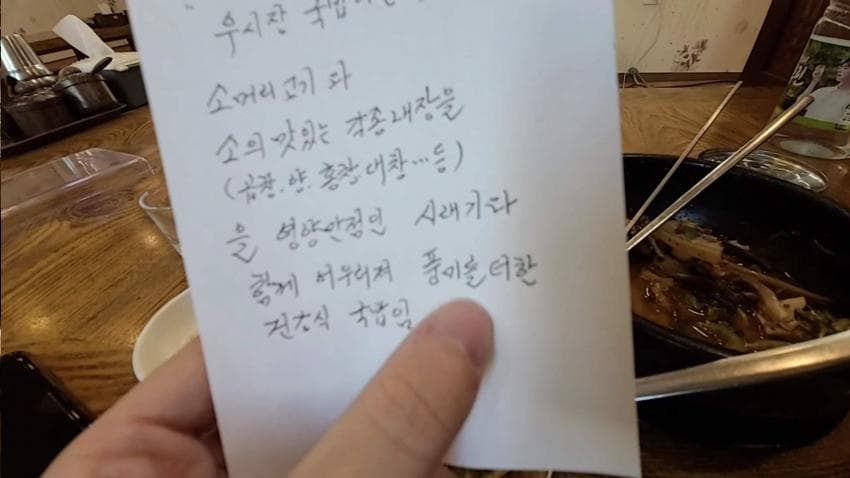 우시장 국밥이란
소머리고기와
소의 맛있는 각종내장을
(곱창.양.홍창.대창...등)
을 영양만점인 시래기와
함께 어우러져 풍미를 더한
건강식 국밥임